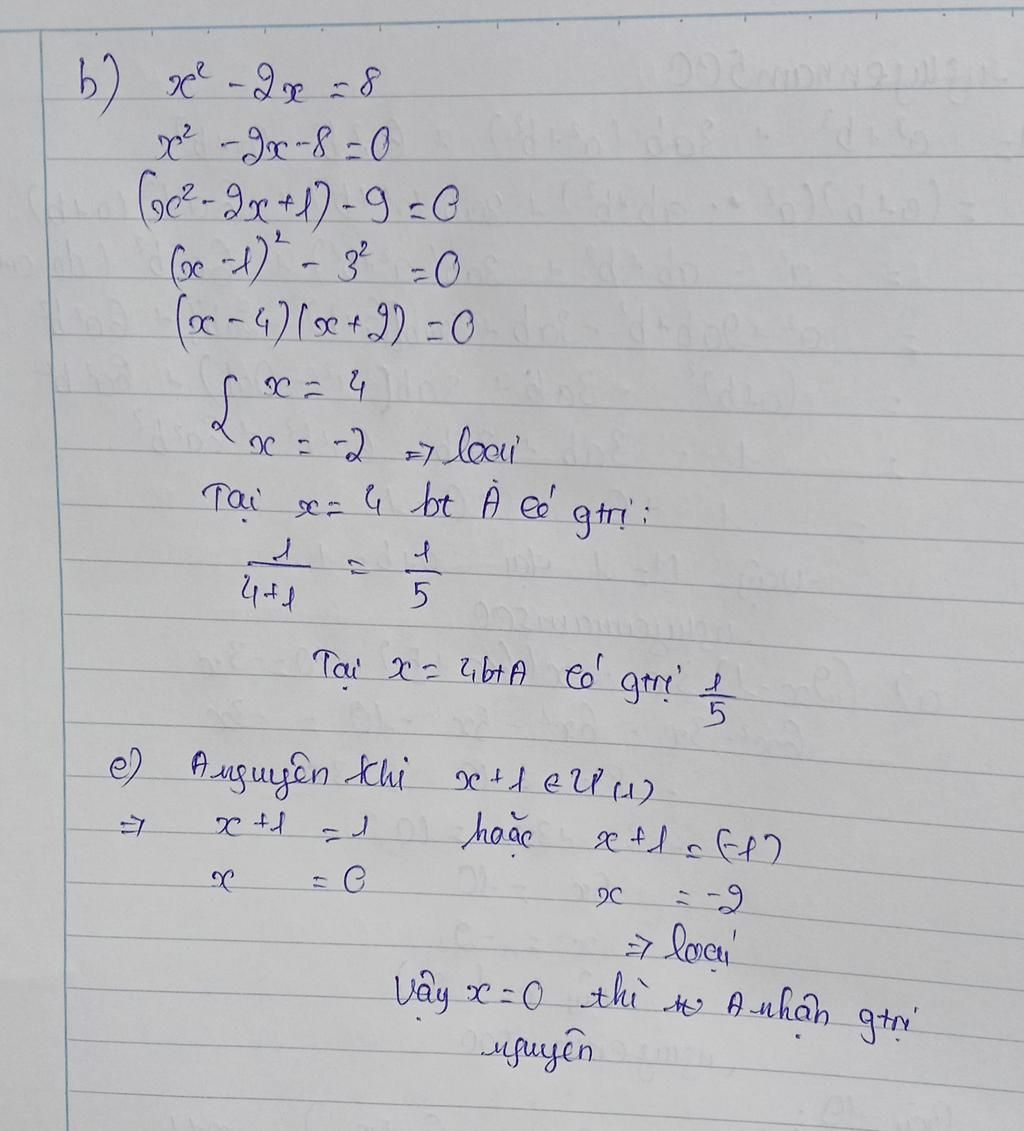 b) x² - 2x = 8
x² - 2x - 8 = 0
(x² - 2x + 1) - 9 = 0
(x - 1)² - 3² = 0
(x - 4)(x + 2) = 0
{ x = 4
x = -2 => loại
Tại x = 4 bt A có gtrị:
1/(4+1) = 1/5
Tại x = 4 bt A có gtrị 1/5
c) A nguyên khi x + 1 ∈ Ư(1)
=> x + 1 = 1 hoặc x + 1 = (-1)
x = 0 x = -2
=> loại
Vậy x = 0 thì A nhận gtrị
nguyên